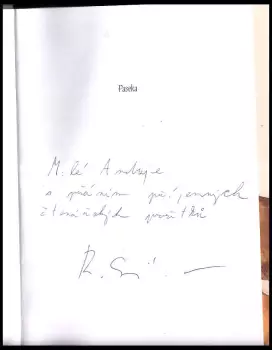 Paseka
Milé
s přáním příjemných
čtenářských prožitků
R.